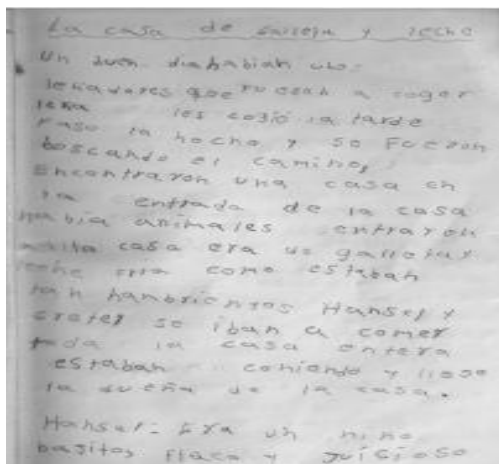 La casa de galleta y leche
Un buen dia habian uno:
leñadores que fueron a coger
leña les cogió la tarde
Paso la noche y se fueron
boscando el camino,
encontraron una casa en
la entrada de la casa
habia animales entraron
casa era de galleta y
leche como estaban
tan hambrientos Hansel y
Gretel se iban a comer
toda la casa entera
estaban comiendo y llego
la dueña de la casa.
Hansel: Era un niño
bajitos flaco y juisioso